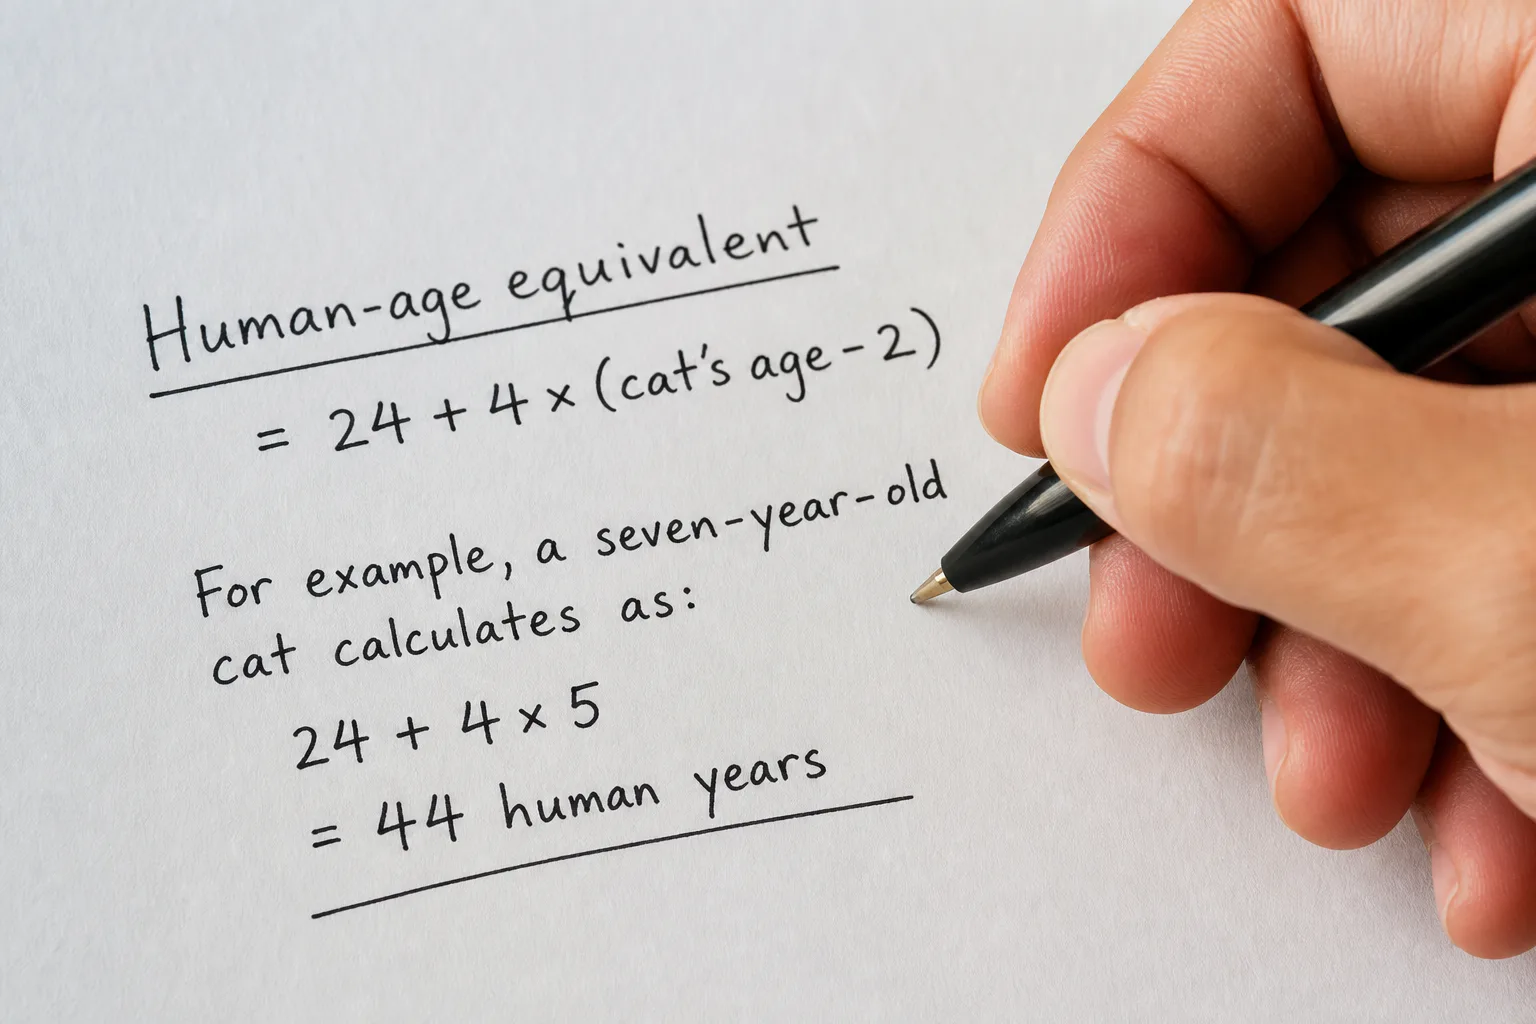 Human-age equivalent
= 24 + 4 × (cat's age - 2)
For example, a seven-year-old
cat calculates as:
24 + 4 × 5
= 44 human years